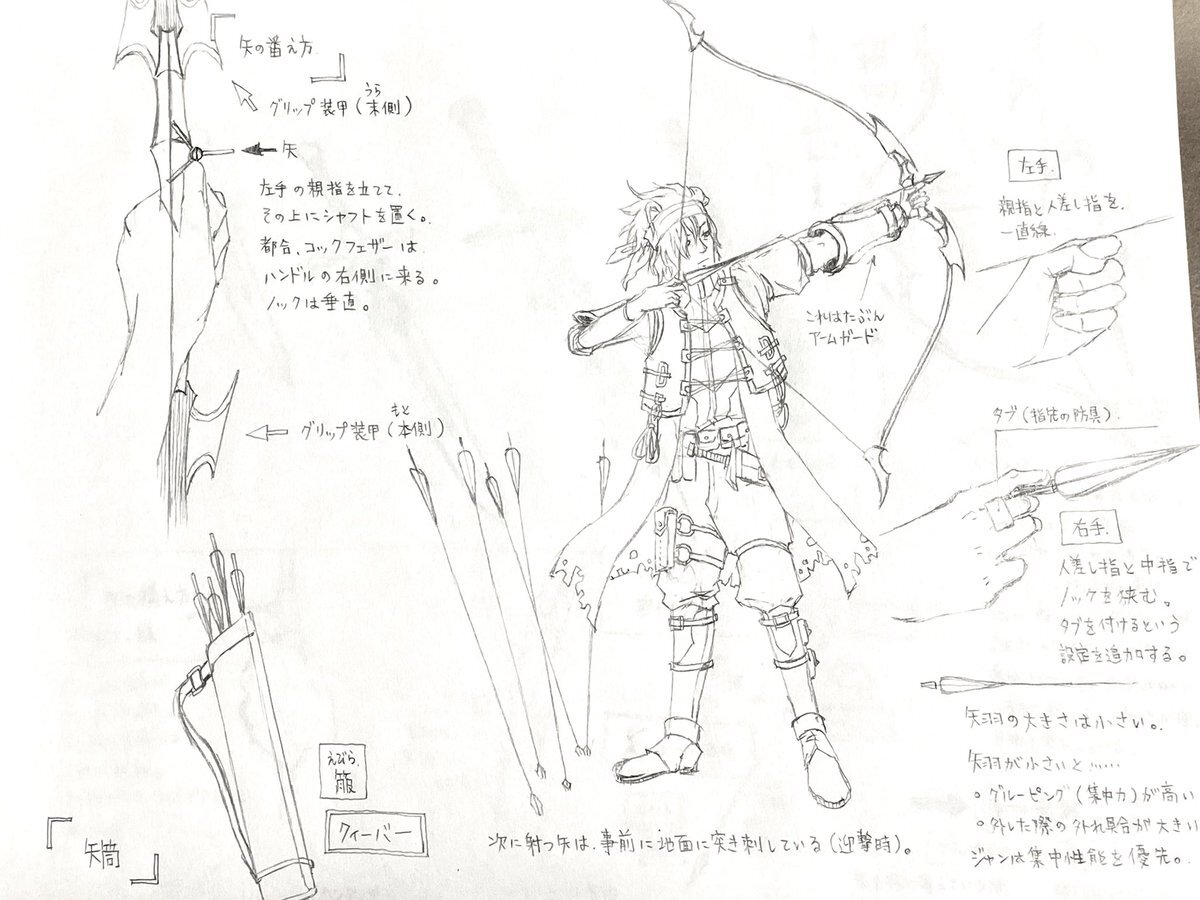 矢の番え方
グリップ装甲(末側)
うら
矢
左手の親指を立てて、
その上にシャフトを置く。
都合、コックフェザーは
ハンドルの右側に来る。
ノックは垂直。
グリップ装甲(本側)
もと
これはたぶん
アームガード
左手.
親指と人差し指を、
一直線.
タブ(指先の防具).
右手.
人差し指と中指で
ノックを挟む。
タブを付けるという
設定を追加する。
矢羽の大きさは小さい。
矢羽が小さいと……
。グルーピング(集中力)が高い
。外した際の外れ具合が大きい
ジャンは集中性能を優先。
えびら
箙
クィーバー
矢筒
次に射つ矢は、事前に地面に突き刺している(迎撃時)。